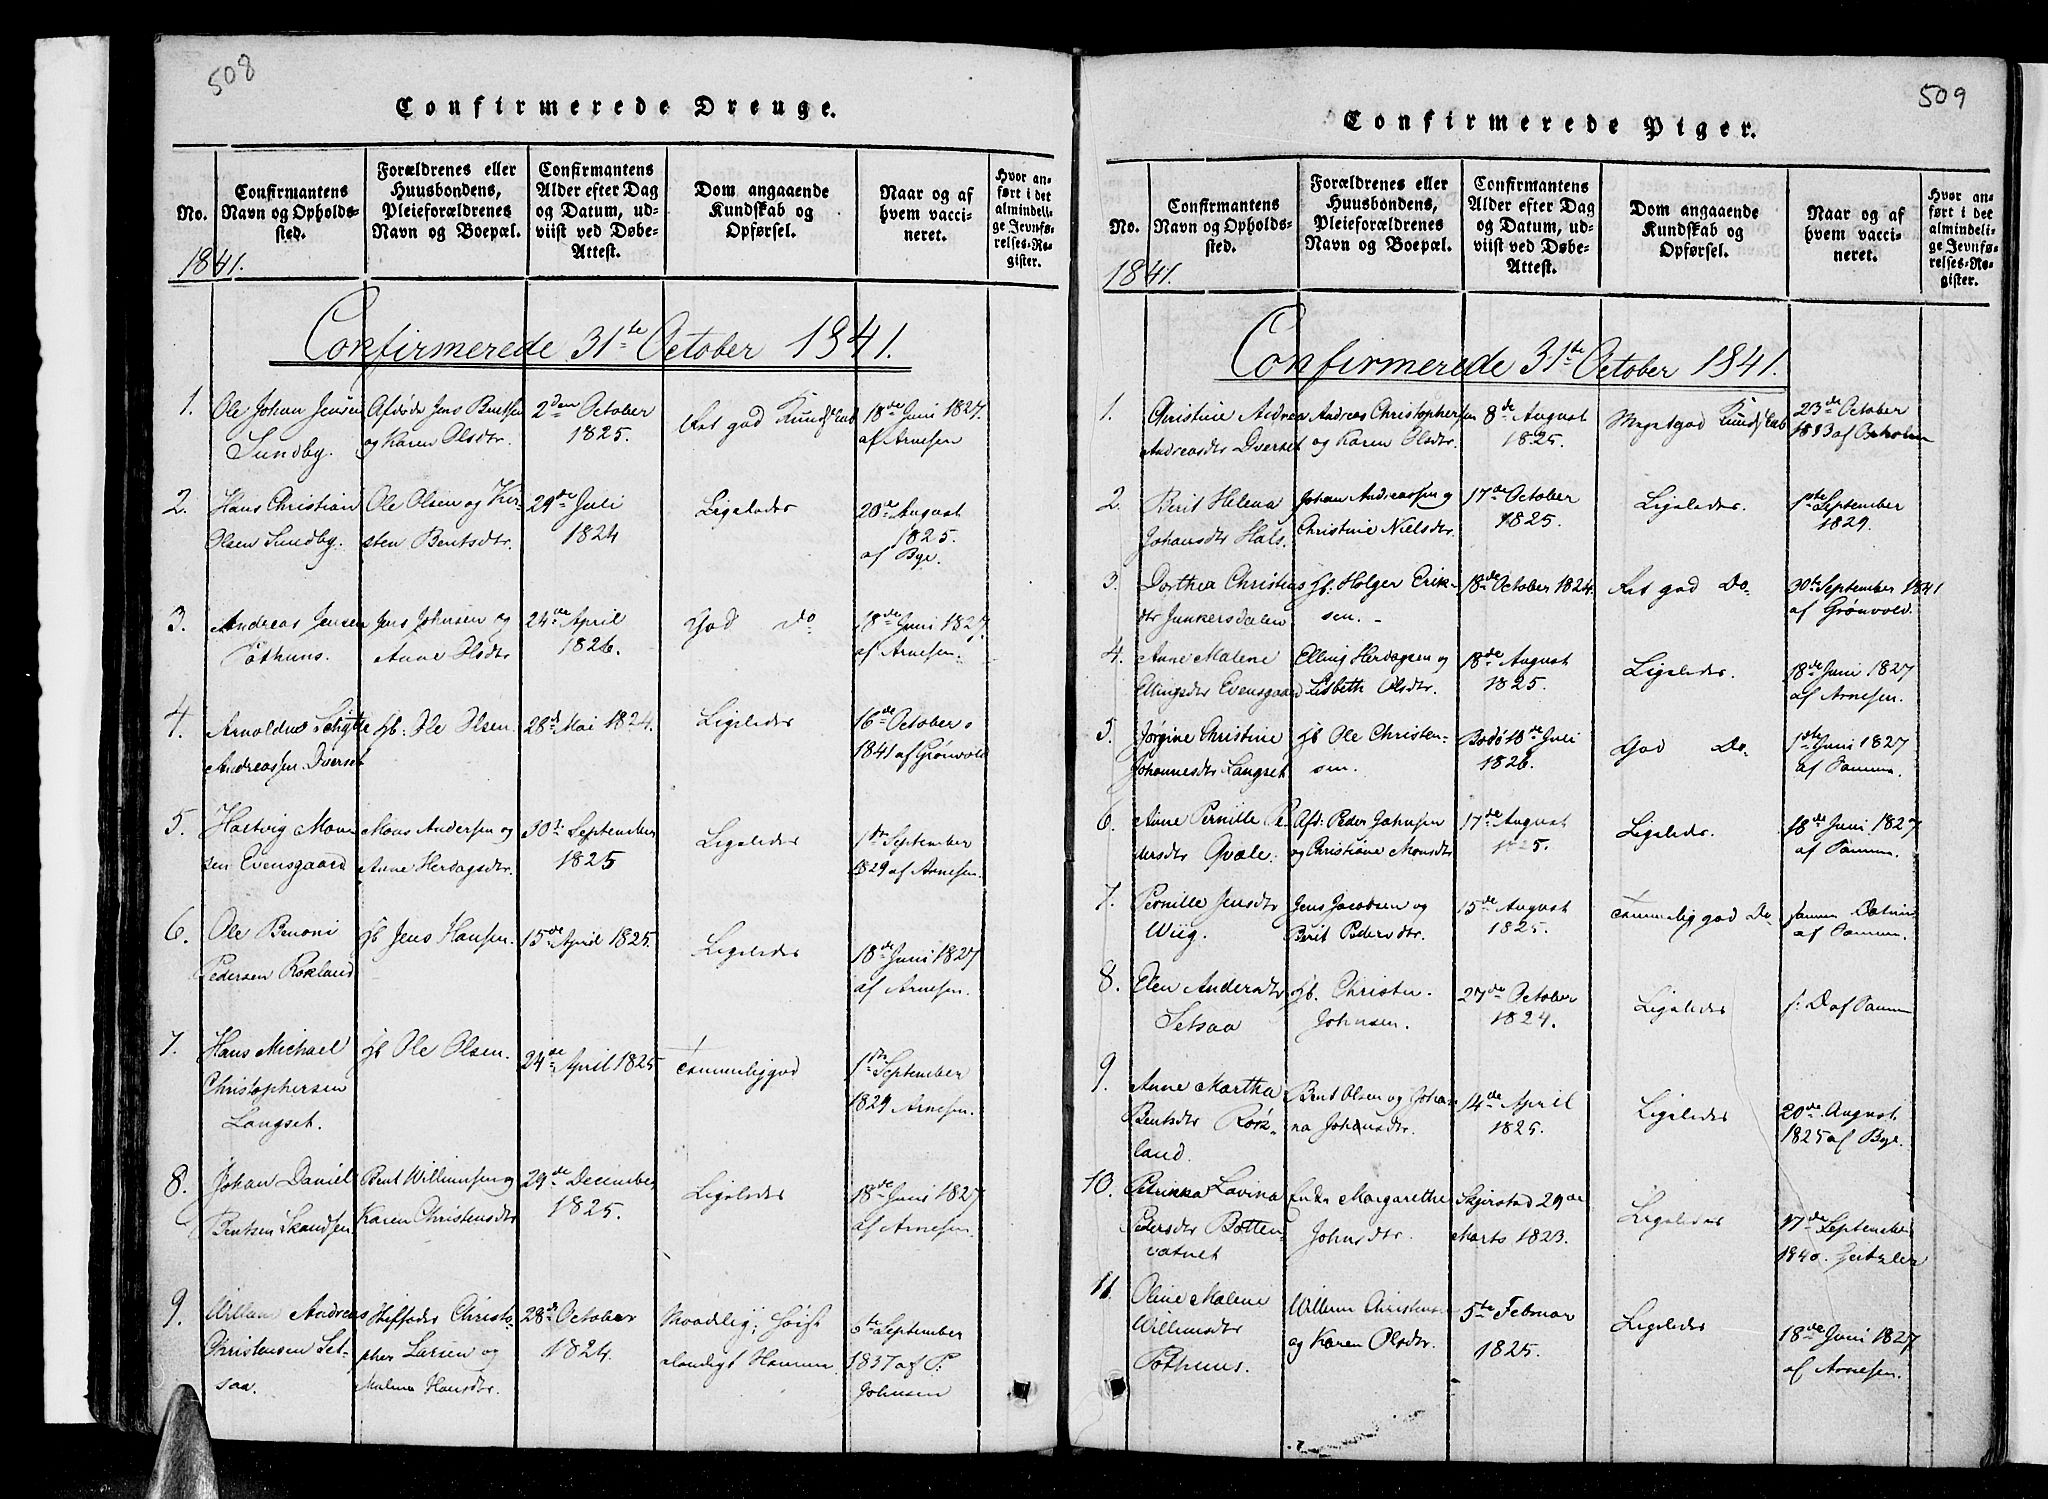 508
Confirmerede Drenge.
No.
Confirmantens
Navn og Opholds-
sted.
Forældrenes eller
Huusbondens,
Pleieforældrenes
Navn og Boepæl.
Confirmantens
Alder efter Dag
og Datum, ud-
viist ved Døbe-
Attest.
Dom angaaende
Kundskab og
Opførsel.
Naar og af
hvem vacci-
neret.
Hvor an-
ført i det
almindeli-
ge Jevnfø-
relses-Re-
gister.
1841.
Confirmerede 31te October 1841.
1.
Ole Johan Jensen
Sundby.
Afdøde Jens Bentsen
og Karen Olsdtr.
2den October
1825.
Ret god Kundskab
18de Juni 1827.
af Arnesen
2.
Hans Christian
Olsen Sundby.
Ole Olsen og Kir-
sten Bentsdtr.
29de Juli
1824
Ligeledes
20de August
1825.
af Bye.
3.
Andreas Jensen
Pothuus.
Jens Johnsen og
Anne Olsdtr
24de April
1826.
God Do
18de Juni 1827.
af Arnesen.
4.
Arnoldus Schytte
Andreassen Dverset
Hb. Ole Olsen.
28d Mai 1824.
Ligeledes
16de October
1841 af Grønvold
5.
Hartvig Mon-
sen Evensgaard
Mons Andersen og
Anne Herdagsdtr.
30t September
1825
Ligeledes
1ste September
1829 af Arnesen.
6.
Ole Benoni
Pedersen Rokland
Hb Jens Hansen.
15de April 1825.
Ligeledes
18de Juni 1827
af Arnesen.
7.
Hans Michael
Christophersen
Langset.
Hb Ole Olsen.
24de April 1825
Temmelig god
1ste September
1829 Arnesen.
8.
Johan Daniel
Bentsen Skandsen
Bent Willumsen og
Karen Christensdtr
29de December
1825.
Ligeledes
18de Juni 1827
af Arnesen.
9.
Willum Andreas
Christensen Set-
saa.
Stiffader Christo-
pher Larsen og
Malene Hansdtr.
28de October
1824.
Maadelig; høist
6te September
1837 af P.
Johnsen
509
Confirmerede Piger.
No.
Confirmantens
Navn og Opholds-
sted.
Forældrenes eller
Huusbondens,
Pleieforældrenes
Navn og Boepæl.
Confirmantens
Alder efter Dag
og Datum, ud-
viist ved Døbe-
Attest.
Dom angaaende
Kundskab og
Opførsel.
Naar og af
hvem vacci-
neret.
Hvor an-
ført i det
almindeli-
ge Jevnfø-
relses-Re-
gister.
1841.
Confirmerede 31te October 1841.
1.
Christine Andrea
Andreasdtr Dverset
Andreas Christophersen
og Karen Olsdtr.
8de August
1825.
Meget god Kundskab
23de October
af
2.
Berit Helena
Johansdtr Hals.
Johan Andreassen og
Christine Nielsdtr.
17de October
1825.
Ligeledes.
1ste September
1829.
3.
Dorthea Christens-
dtr Junkersdalen
Hb. Holger Erik-
sen.
18de October 1824.
Ret god Do.
30te September 1841
af Grønvold.
4.
Anne Malene
Ellingsdtr Evensgaard
Elling Herdagsen og
Lisbeth Olsdtr.
18de August
1825.
Ligeledes.
18de Juni 1827
af Arnesen.
5.
Jørgine Christine
Johannesdtr Langset
Hb Ole Christen-
sen.
Bodø 18de Juli
1826.
God Do.
1ste Juni 1827
af Samme.
6.
Anne Pernille Pe-
dersdtr Qvæle.
Afd. Peder Johnsen
og Christine Monsdtr
17de August
1825.
Ligeledes.
18de Juni 1827
af Samme.
7.
Pernille Jensdtr
Wiig.
Jens Jacobsen og
Berit Pedersdtr.
15de August
1825.
Temmelig god Do
samme Datum
af Samme.
8.
Elen Andersdtr
Setsaa
Hb. Christen
Johnsen.
27de October
1824.
Ligeledes
s: D af Samme
9.
Anne Martha
Bentsdtr Røk-
land.
Bent Olsen og Johan-
na Johansdtr.
14de April
1825.
Ligeledes
20de August
1825 af Bye.
10.
Petrikka Lovina
Pedersdtr Botten-
vatnet
Enke Margarethe
Johnsdtr.
Skjerstad 29de
Marts 1823.
Ligeledes
17de September
1840.
11
Oline Malene
Willumsdtr
Pothuus.
Willum Christensen
og Karen Olsdtr.
5te Februar
1825.
Ligeledes
18de Juni 1827
af Arnesen.